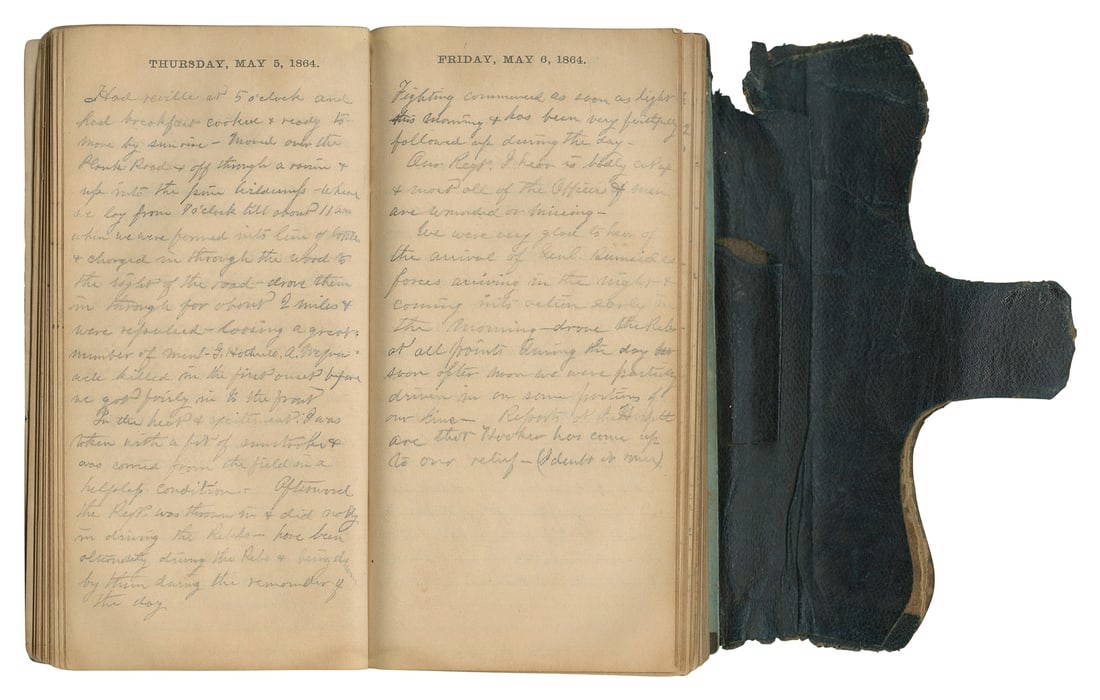 THURSDAY, MAY 5, 1864.
Had reville at 5 o'clock and
had breakfast cooked & ready to
move by sunrise - Moved over the
Plank Road & off through a ravine &
up into the pine wilderness - where
we lay from 8 o'clock till about 11 am
when we were formed into line of battle
& charged in through the wood to
the right of the road - drove them
in through for about 2 miles &
were repulsed - loosing a great
number of men - G.
were killed in the first onset before
we got fairly in to the front
In the heat & excitement I was
taken with a bit of sunstroke &
was carried from the field in a
helpless condition - Afterward
the Regt. was thrown in & did nobly
in driving the Rebbs - have been
alternately driving the Rebs & being
by them during the remainder of
the day
FRIDAY, MAY 6, 1864.
Fighting commenced as soon as light
this morning & has been very faithfully
followed up during the day -
Our Regt. I hear is badly cut up
& most all of the Officers & men
are wounded or missing -
We were very glad to hear of
the arrival of Genl. Burnsides
forces arriving in the night &
coming into action early in
the morning - drove the Rebs
at all points during the day but
soon after noon we were
driven in on some portions of
our line - Reports at the
are that Hooker has come up
to our relief - (I doubt